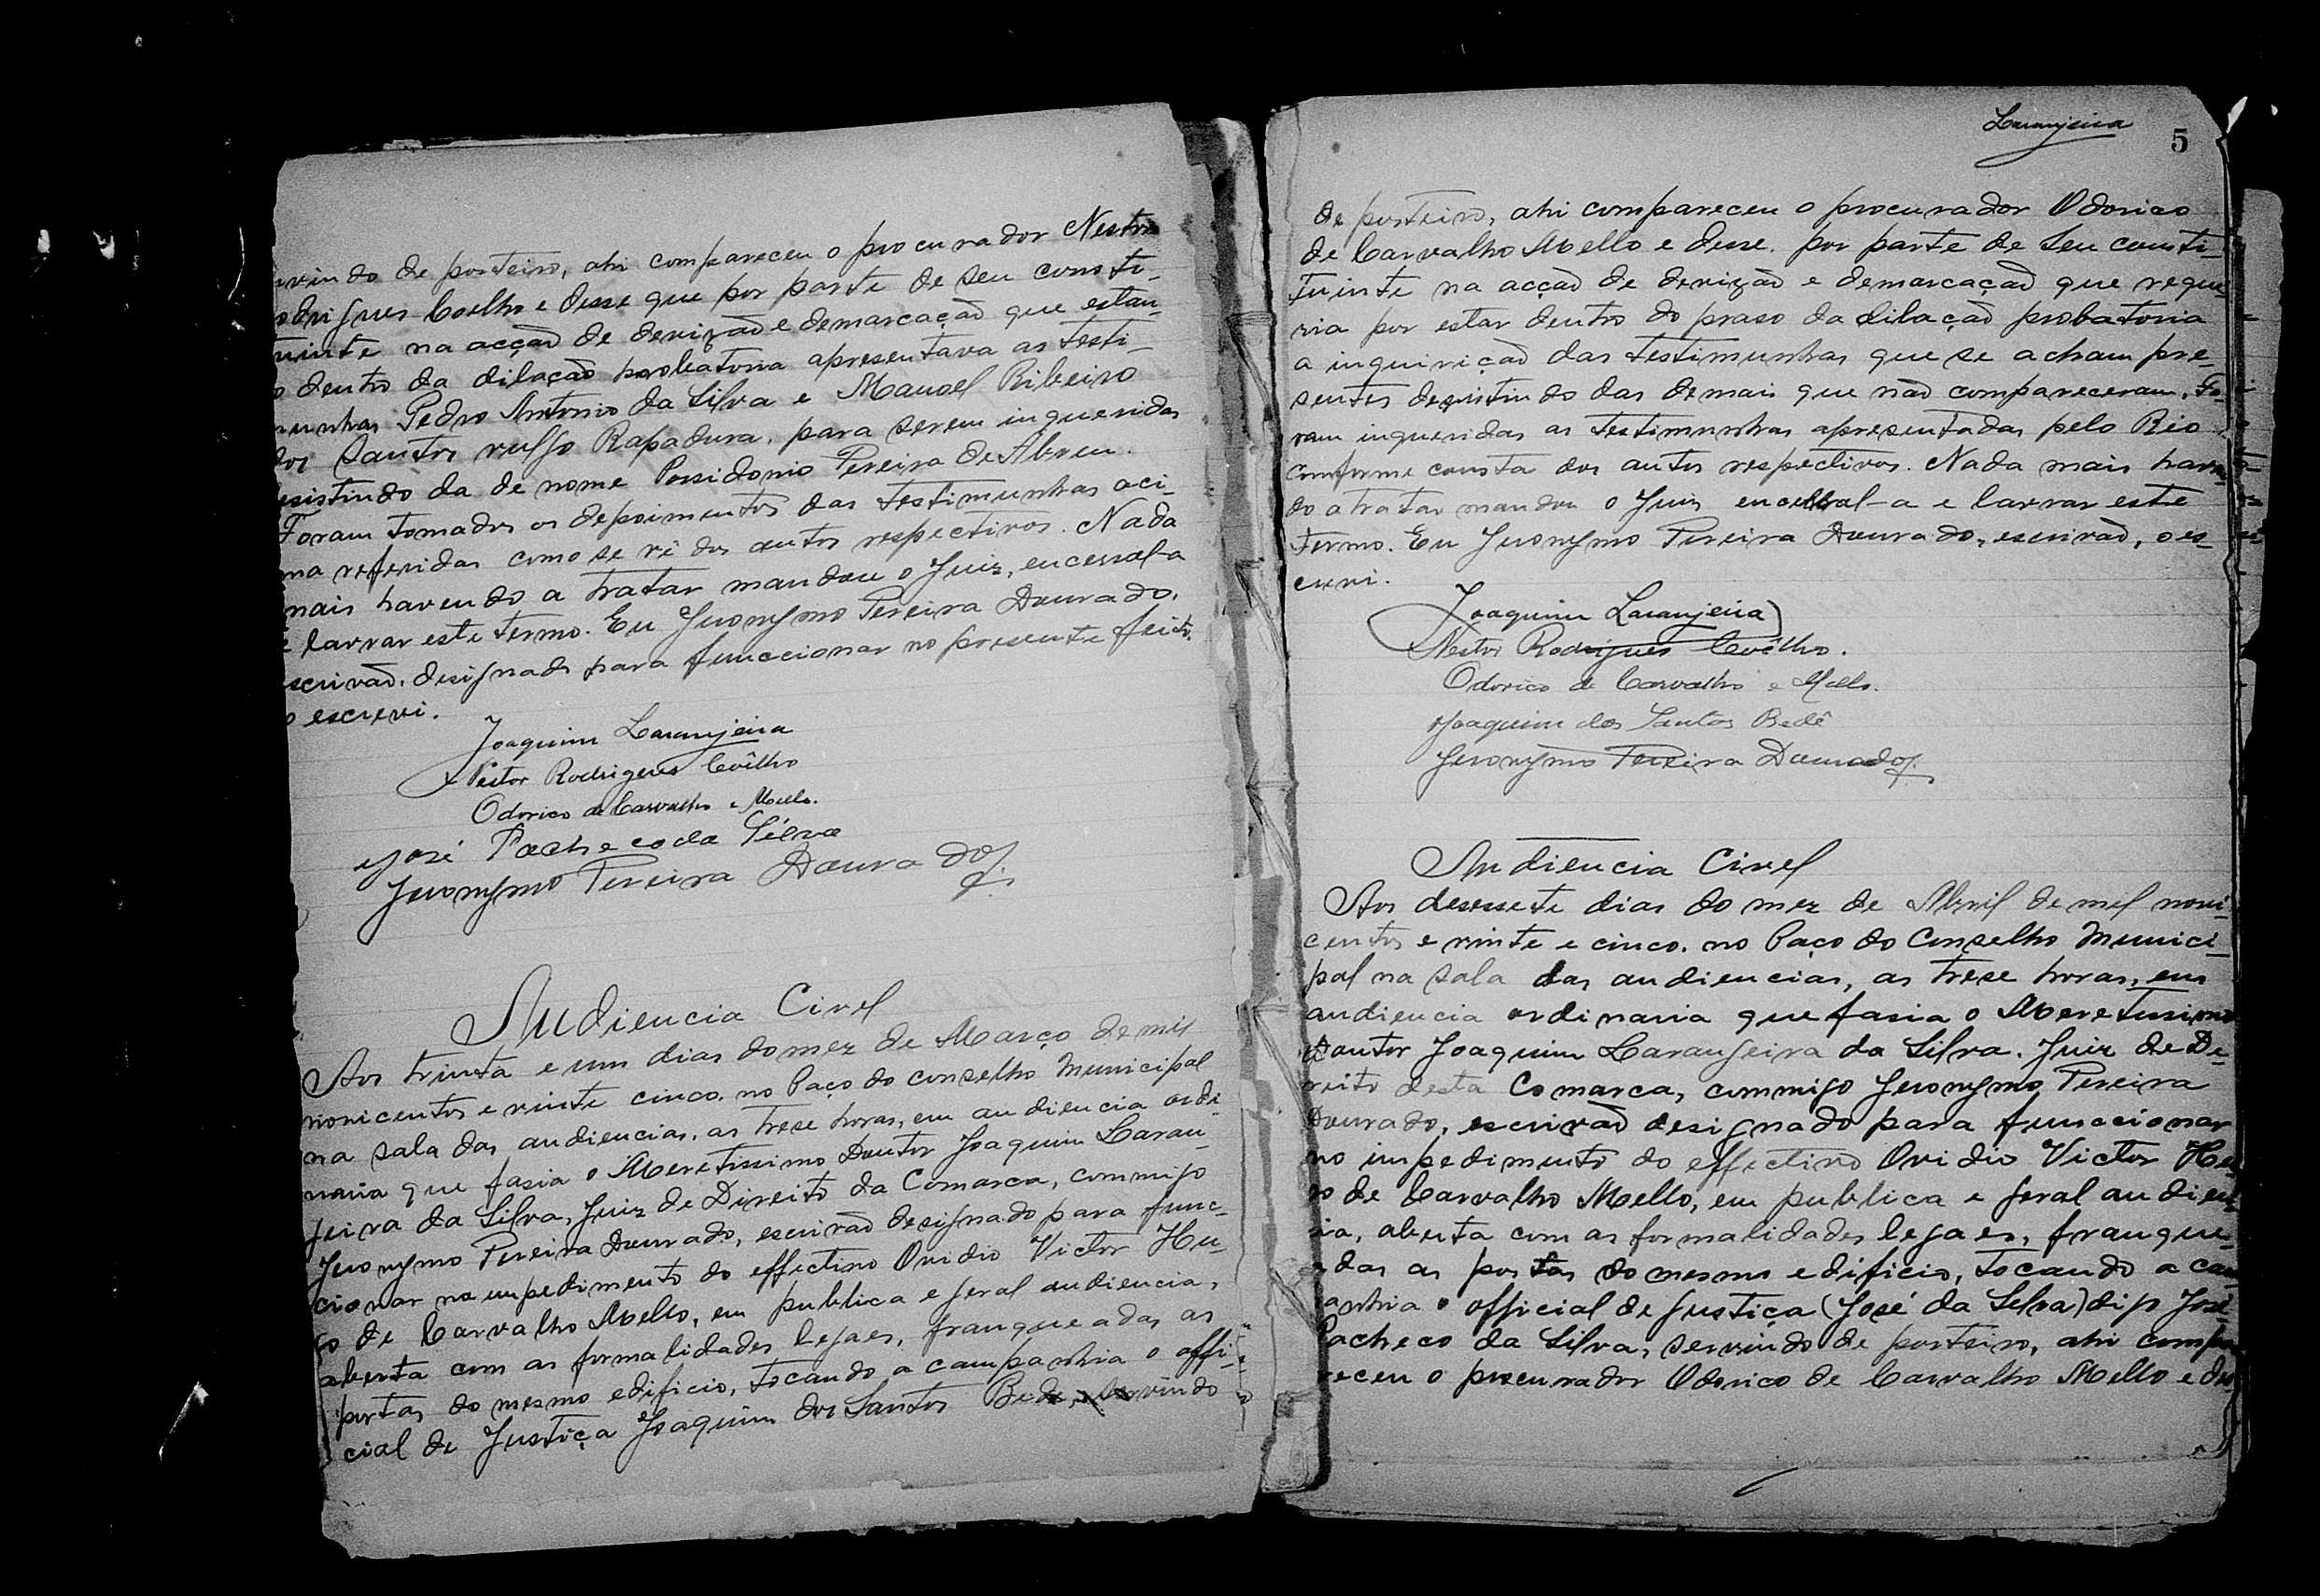 rvindo de porteiro, ahi compareceu o procurador Nestor
odrigues Coelho e disse que por parte de seu consti-
tuinte na acção de devizão e demarcação que estan-
o dentro da dilação probatoria apresentava as testi-
munhas Pedro Antonio da Silva e Manoel Ribeiro
dos Santos vulgo Rapadura, para serem inqueridas
esistindo da de nome Possidonio Pereira de Abreu.
Foram tomados os depoimentos das testimunhas aci-
ma referidas como se vê dos autos respectivos. Nada
mais havendo a tratar mandou o Juiz, encerral-a
e lavrar este termo. Eu Jeronymo Pereira Dourado,
scrivão, designado para funccionar no presente feito,
o escrevi.
Joaquim Laranjeira
Nestor Rodrigues Coêlho
Odorico de Carvalho e Mello.
José Pacheco da Silva
Jeronymo Pereira Dourado
Audiencia Civel
Aos trinta e um dias do mez de Março de mil
novicentos e vinte cinco, no Paço do conselho Municipal
na sala das audiencias, as trese horas, em audiencia ordi-
naria que fasia o Meretissimo Doutor Joaquim Laran-
jeira da Silva, Juiz de Direito da Comarca, commigo
Jeronymo Pereira Dourado, escrivão designado para func-
cionar no impedimento do effectivo Ovidio Victor Hu-
go de Carvalho Mello, em publica e geral audiencia,
aberta com as formalidades legaes, franqueadas as
portas do mesmo edificio, tocando a campanhia o offi-
cial de Justiça Joaquim dos Santos Bedê, servindo
Laranjeira
5
de porteiro, ahi compareceu o procurador Odorico
de Carvalho Mello e disse. por parte de seu consti-
tuinte na acção de devizão e demarcação que reque-
ria por estar dentro do praso da dilação probatoria
a inquirição das testimunhas que se acham pre-
sentes desistindo das demais que não compareceram. Fo-
ram inqueridas as testimunhas apresentadas pelo Rio
conforme consta dos autos respectivos. Nada mais haven-
do a tratar mandou o Juiz encerral-a e lavrar este
termo. Eu Jeronymo Pereira Dourado, escrivão, o es-
crevi.
Joaquim Laranjeira
Nestor Rodrigues Coêlho.
Odorico de Carvalho e Mello.
Joaquim dos Santos Bedê
Jeronymo Pereira Dourado
Audiencia Civel
Aos desessete dias do mez de Abril de mil novi-
centos e vinte e cinco, no Paço do Conselho Munici-
pal na sala das audiencias, as trese horas, em
audiencia ordinaria que fasia o Meretissimo
Doutor Joaquim Laranjeira da Silva, Juiz de Di-
reito desta Comarca, commigo Jeronymo Pereira
Dourado, escrivão designado para funccionar
no impedimento do effectivo Ovidio Victor Hu-
go de Carvalho Mello, em publica e geral audien-
cia, aberta com as formalidades legaes, franque-
adas as portas do mesmo edificio, tocando a cam
panhia o official de justiça (José da Silva) digo José
Pacheco da Silva, servindo de porteiro, ahi compa-
receu o procurador Odorico de Carvalho Mello e dis